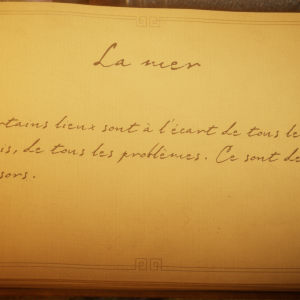 La mer
rtains lieux sont à l'écart de tous le
is, de tous les problèmes. Ce sont de
sors.